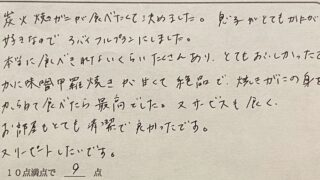 炭火焼がにが食べたくて決めました。息子がとてもかにが
好きなので3杯フルプランにしました。
本当に食べきれないくらいたくさんあり、とてもおいしかったです
かに味噌甲羅焼きが甘くて絶品で、焼きがにの身を
からめて食べたら最高でした。又サービスも良く、
お部屋もとても清潔で良かったです。
又リピートしたいです。
10点満点で 9 点